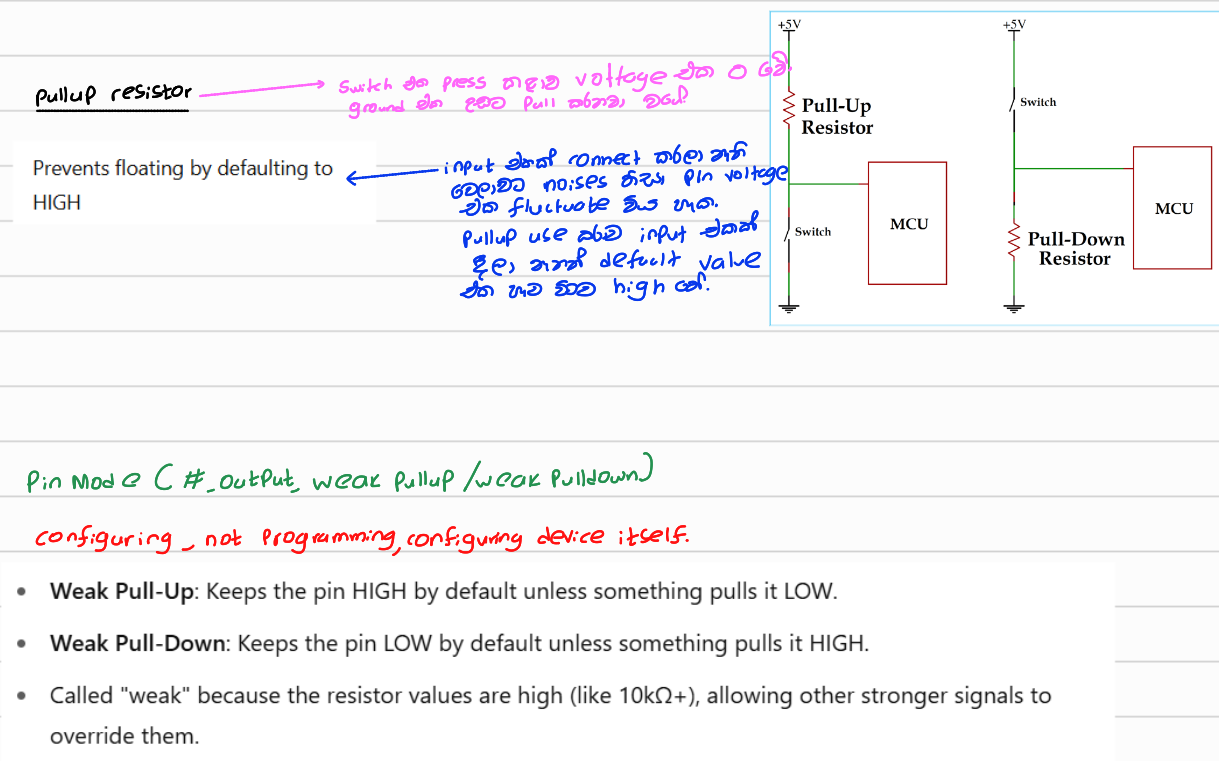 Pullup resistor
Switch එක press කළාම voltage එක 0 වේ.
ground එක දසට Pull කරනවා වගේ
Prevents floating by defaulting to
HIGH
input එකක් connect කරලා නැති
වෙලාවට noises නිසා pin voltage
එක fluctuate විය හැක.
Pullup use කරම input එකක්
දීලා නැත්නම් default value
එක හැම විටම high
+5V
Pull-Up
Resistor
Switch
MCU
+5V
Switch
Pull-Down
Resistor
MCU
Pin Mode ( #_output_ weak pullup /weak Pulldown)
configuring_ not programming, configuring device itself.
• Weak Pull-Up: Keeps the pin HIGH by default unless something pulls it LOW.
• Weak Pull-Down: Keeps the pin LOW by default unless something pulls it HIGH.
• Called "weak" because the resistor values are high (like 10kΩ+), allowing other stronger signals to
override them.